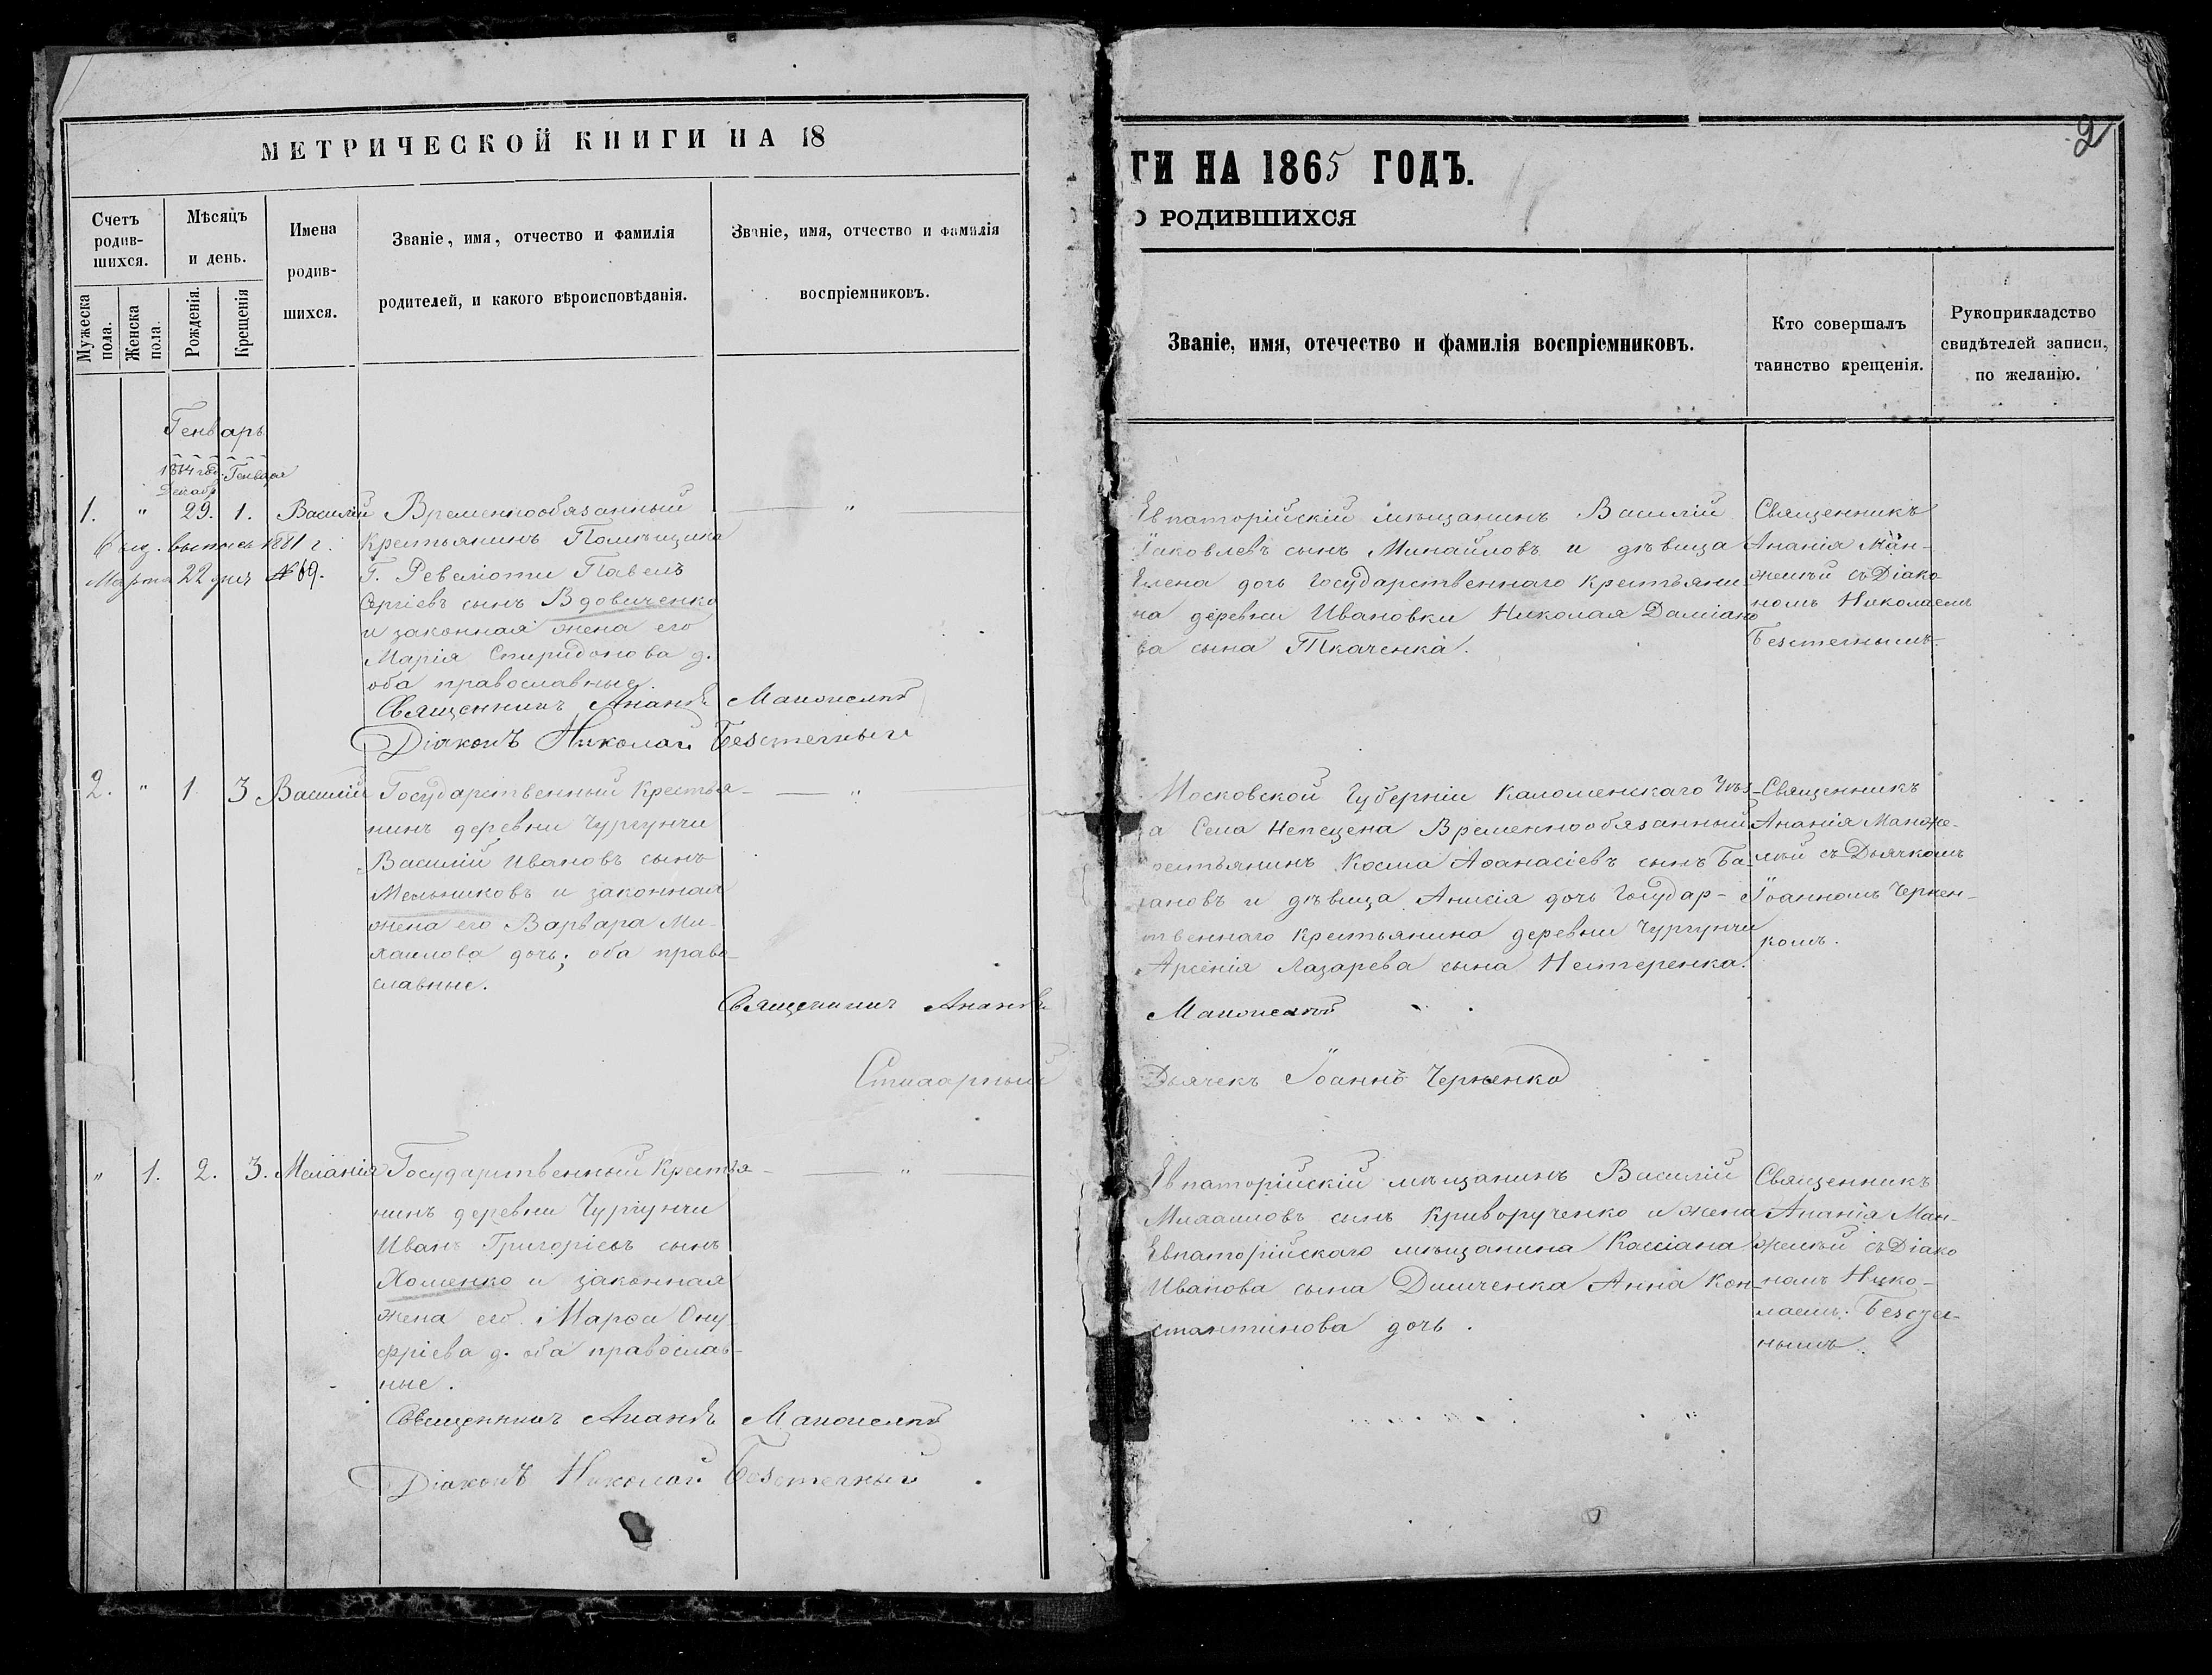 МЕТРИЧЕСКОЙ КНИГИ НА 18
Счетъ родив-
шихся.
Мѣсяцъ
и день.
Имена
родив-
шихся.
Званіе, имя, отчество и фамилія
родителей, и какого вѣроисповѣданія.
Званіе, имя, отчество и фамилія
воспріемниковъ.
Мужеска пола.
Женска пола.
Рожденія.
Крещенія
Генварь
1864 год. Генваря
Декабр
1. " 29. 1. Василій
выпись 1881 г.
Марта 22 дня № 69.
Временнообязанный
крестьянинъ Помѣщика
Г. Ревеліоти Павелъ
Сергіевъ сынъ Вдовиченко
и законная жена его
Марія Спиридонова д.
оба православные.
"
Священникъ Ананія
Діаконъ Николай Безстечный
2. " 1 3 Василій
Государственный Крестья-
нинъ деревни Чургунчи
Василій Ивановъ сынъ
Мельниковъ и законная
жена его Варвара Ми-
хаилова дочь; оба право-
славные.
"
Священникъ Ананія
" 1. 2. 3. Меланія
Государственный Крестья-
нинъ деревни Чургунчи
Иванъ Григоріевъ сынъ
Хоменко и законная
жена его Марѳа Ону
фріева д. оба православ-
ные.
"
Священникъ Ананія
Діаконъ Николай Безстечный
2
ГИ НА 1865 ГОДЪ.
О РОДИВШИХСЯ
Званіе, имя, отечество и фамилія воспріемниковъ.
Кто совершалъ
таинство крещенія.
Рукоприкладство
свидѣтелей записи,
по желанію.
Евпаторійскій мѣщанинъ Василій
Іаковлевъ сынъ Михайловъ и дѣвица
Елена дочь Государственнаго крестьяни-
на деревни Ивановки Николая Даміано
ва сына Ткаченка.
Священникъ
Ананія Ман-
желѣй съ Діако
номъ Николаемъ
Безстечнымъ.
Московской Губерніи Каломенскаго Уѣз-
а Села Непецена Временнообязанный
рестьянинъ Косма Аѳанасіевъ сынъ Ба-
ановъ и дѣвица Анисія дочь Государ-
твеннаго Крестьянина деревни Чургунчи
Арсенія Лазарева сына Нестеренка.
Священникъ
Ананія Манже-
лѣй съ Дьячкомъ
Іоанномъ Чернен-
комъ.
Дьячекъ Іоаннъ Черненко
Евпаторійскій мѣщанинъ Василій
Михаиловъ сынъ Криворученко и жена
Евпаторійскаго мѣщанина Кассіана
Иванова сына Димченка Анна Кон-
стантинова дочь.
Священникъ
Ананія Ман-
желѣй съ Діако
номъ Нико-
лаемъ
нымъ.